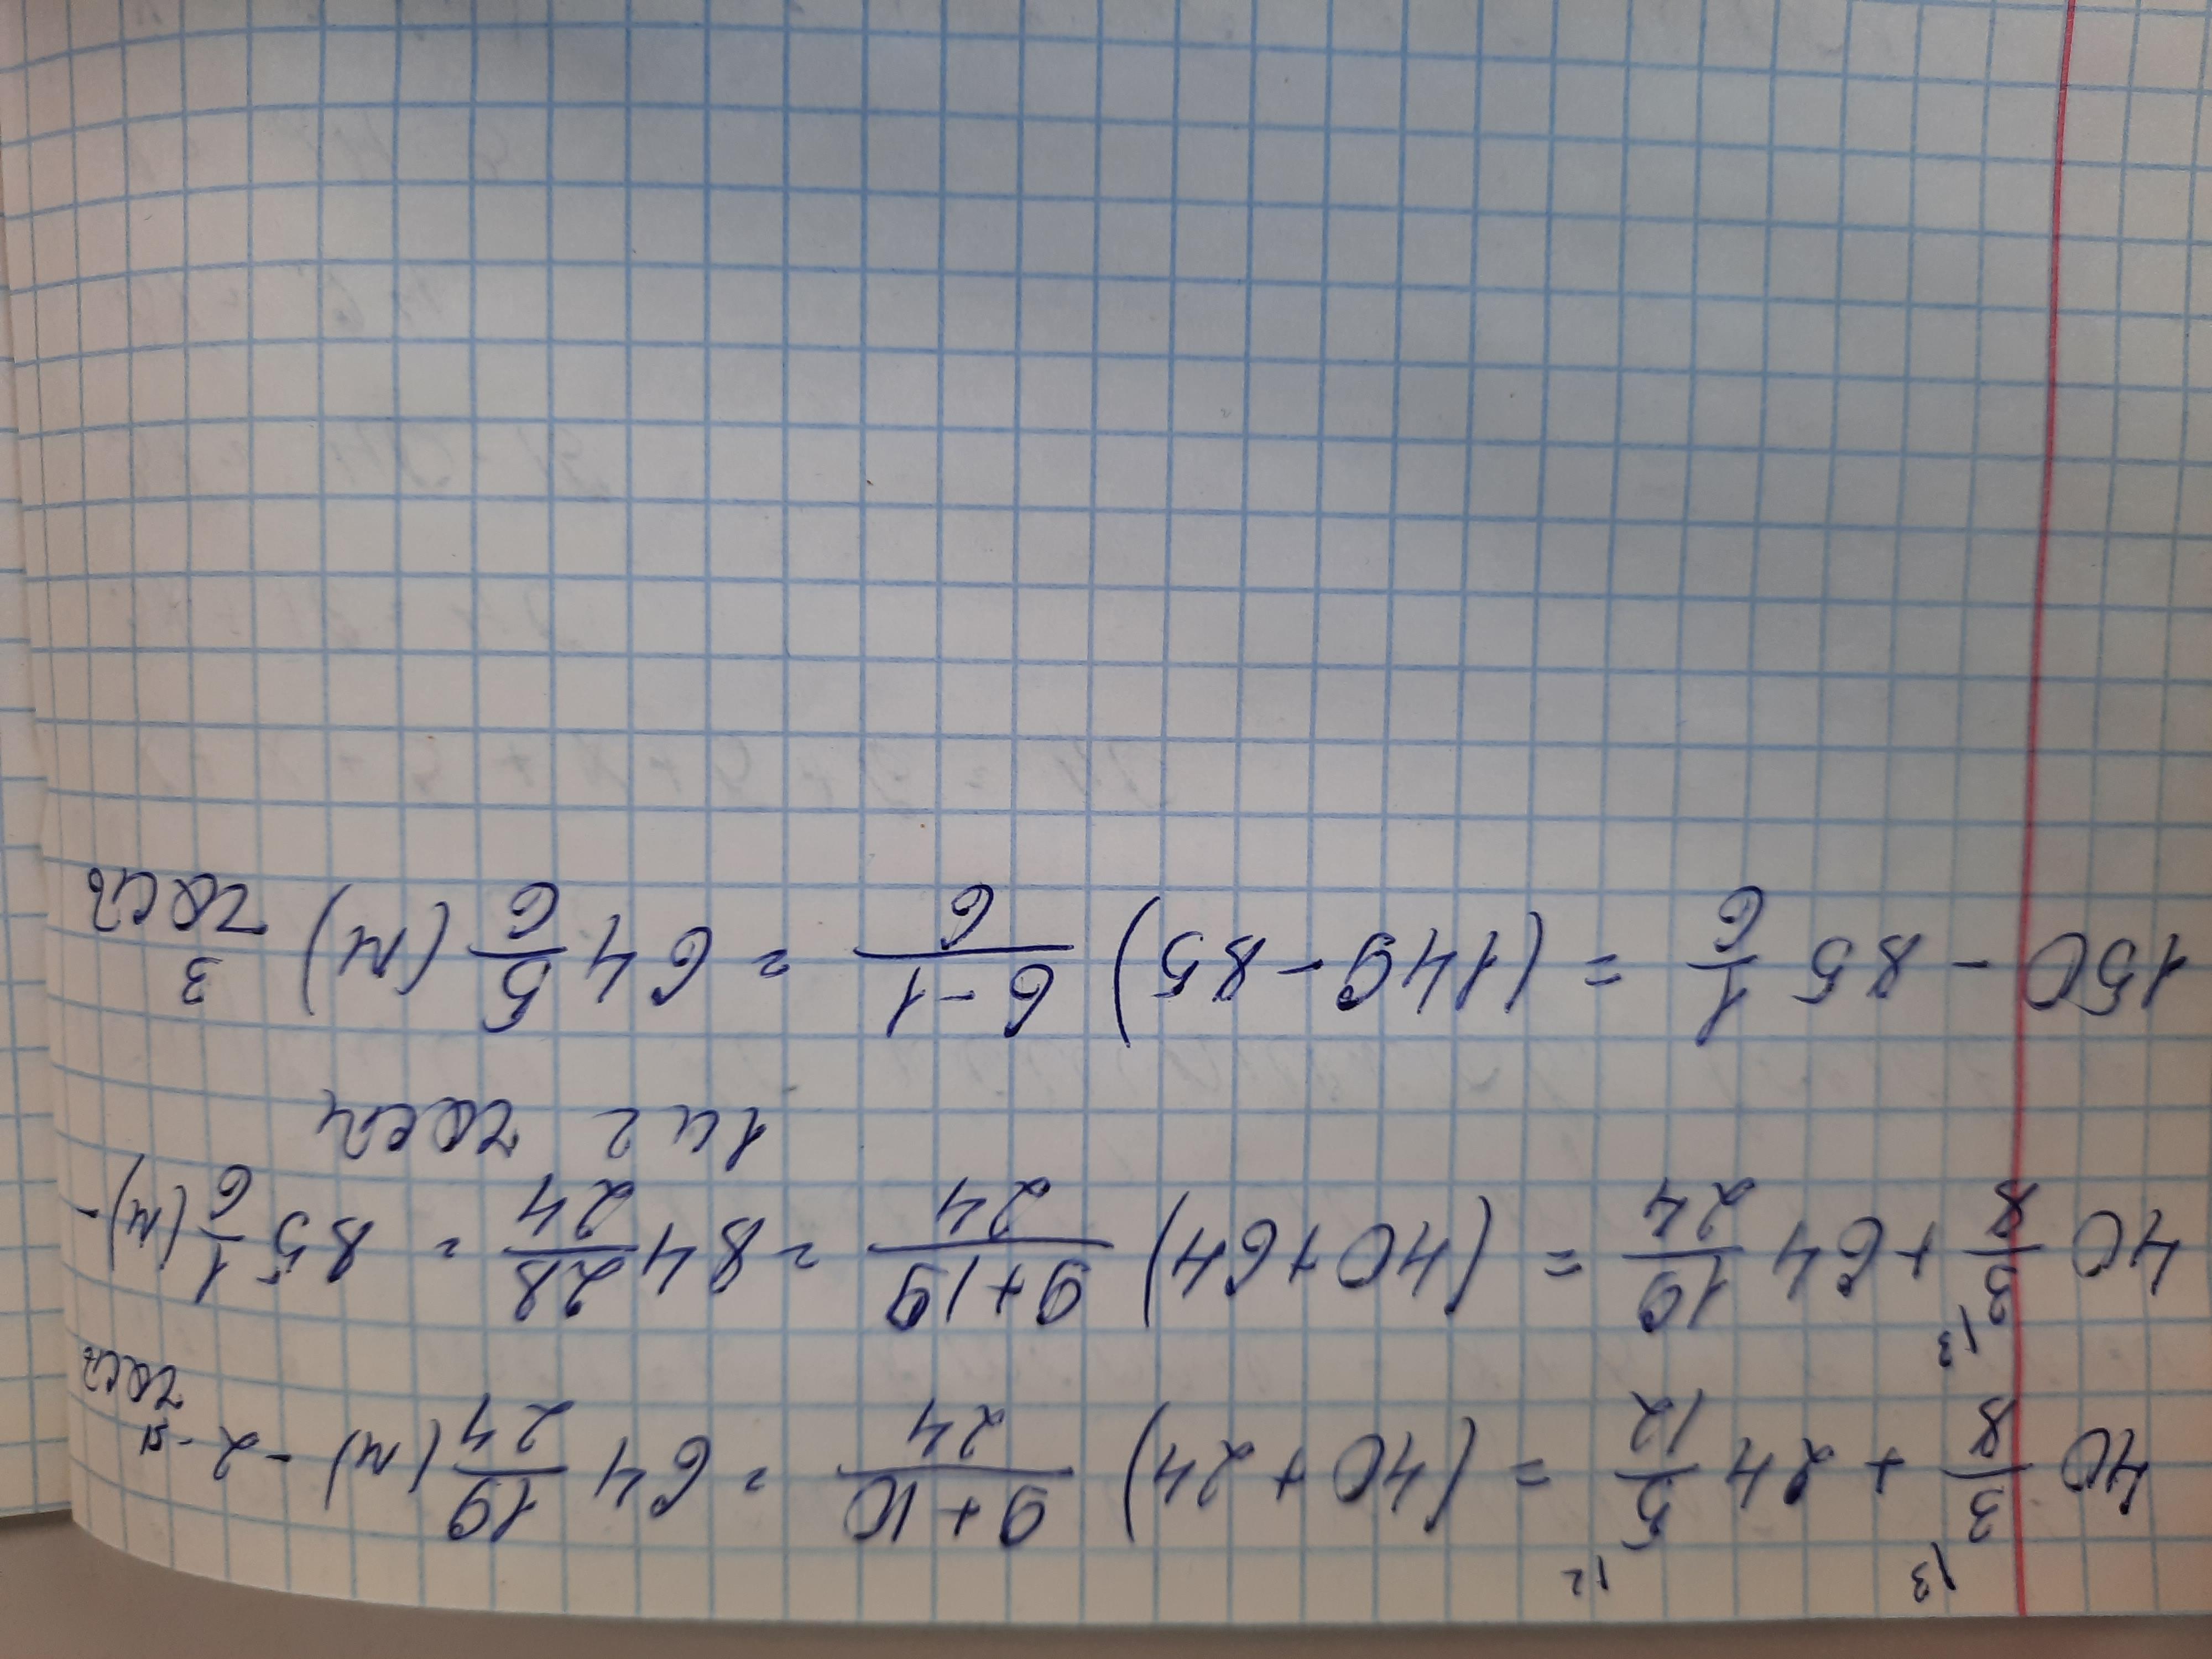 40 3/8 + 24 5/12 = (40+24) 9+10/24 = 64 19/24 (м) - 2-я часть
40 3/8 + 64 19/24 = (40+64) 9+19/24 = 84 28/24 = 85 1/6 (м) -
1 и 2 части
150 - 85 1/6 = (149-85) 6-1/6 = 64 5/6 (м) 3 часть